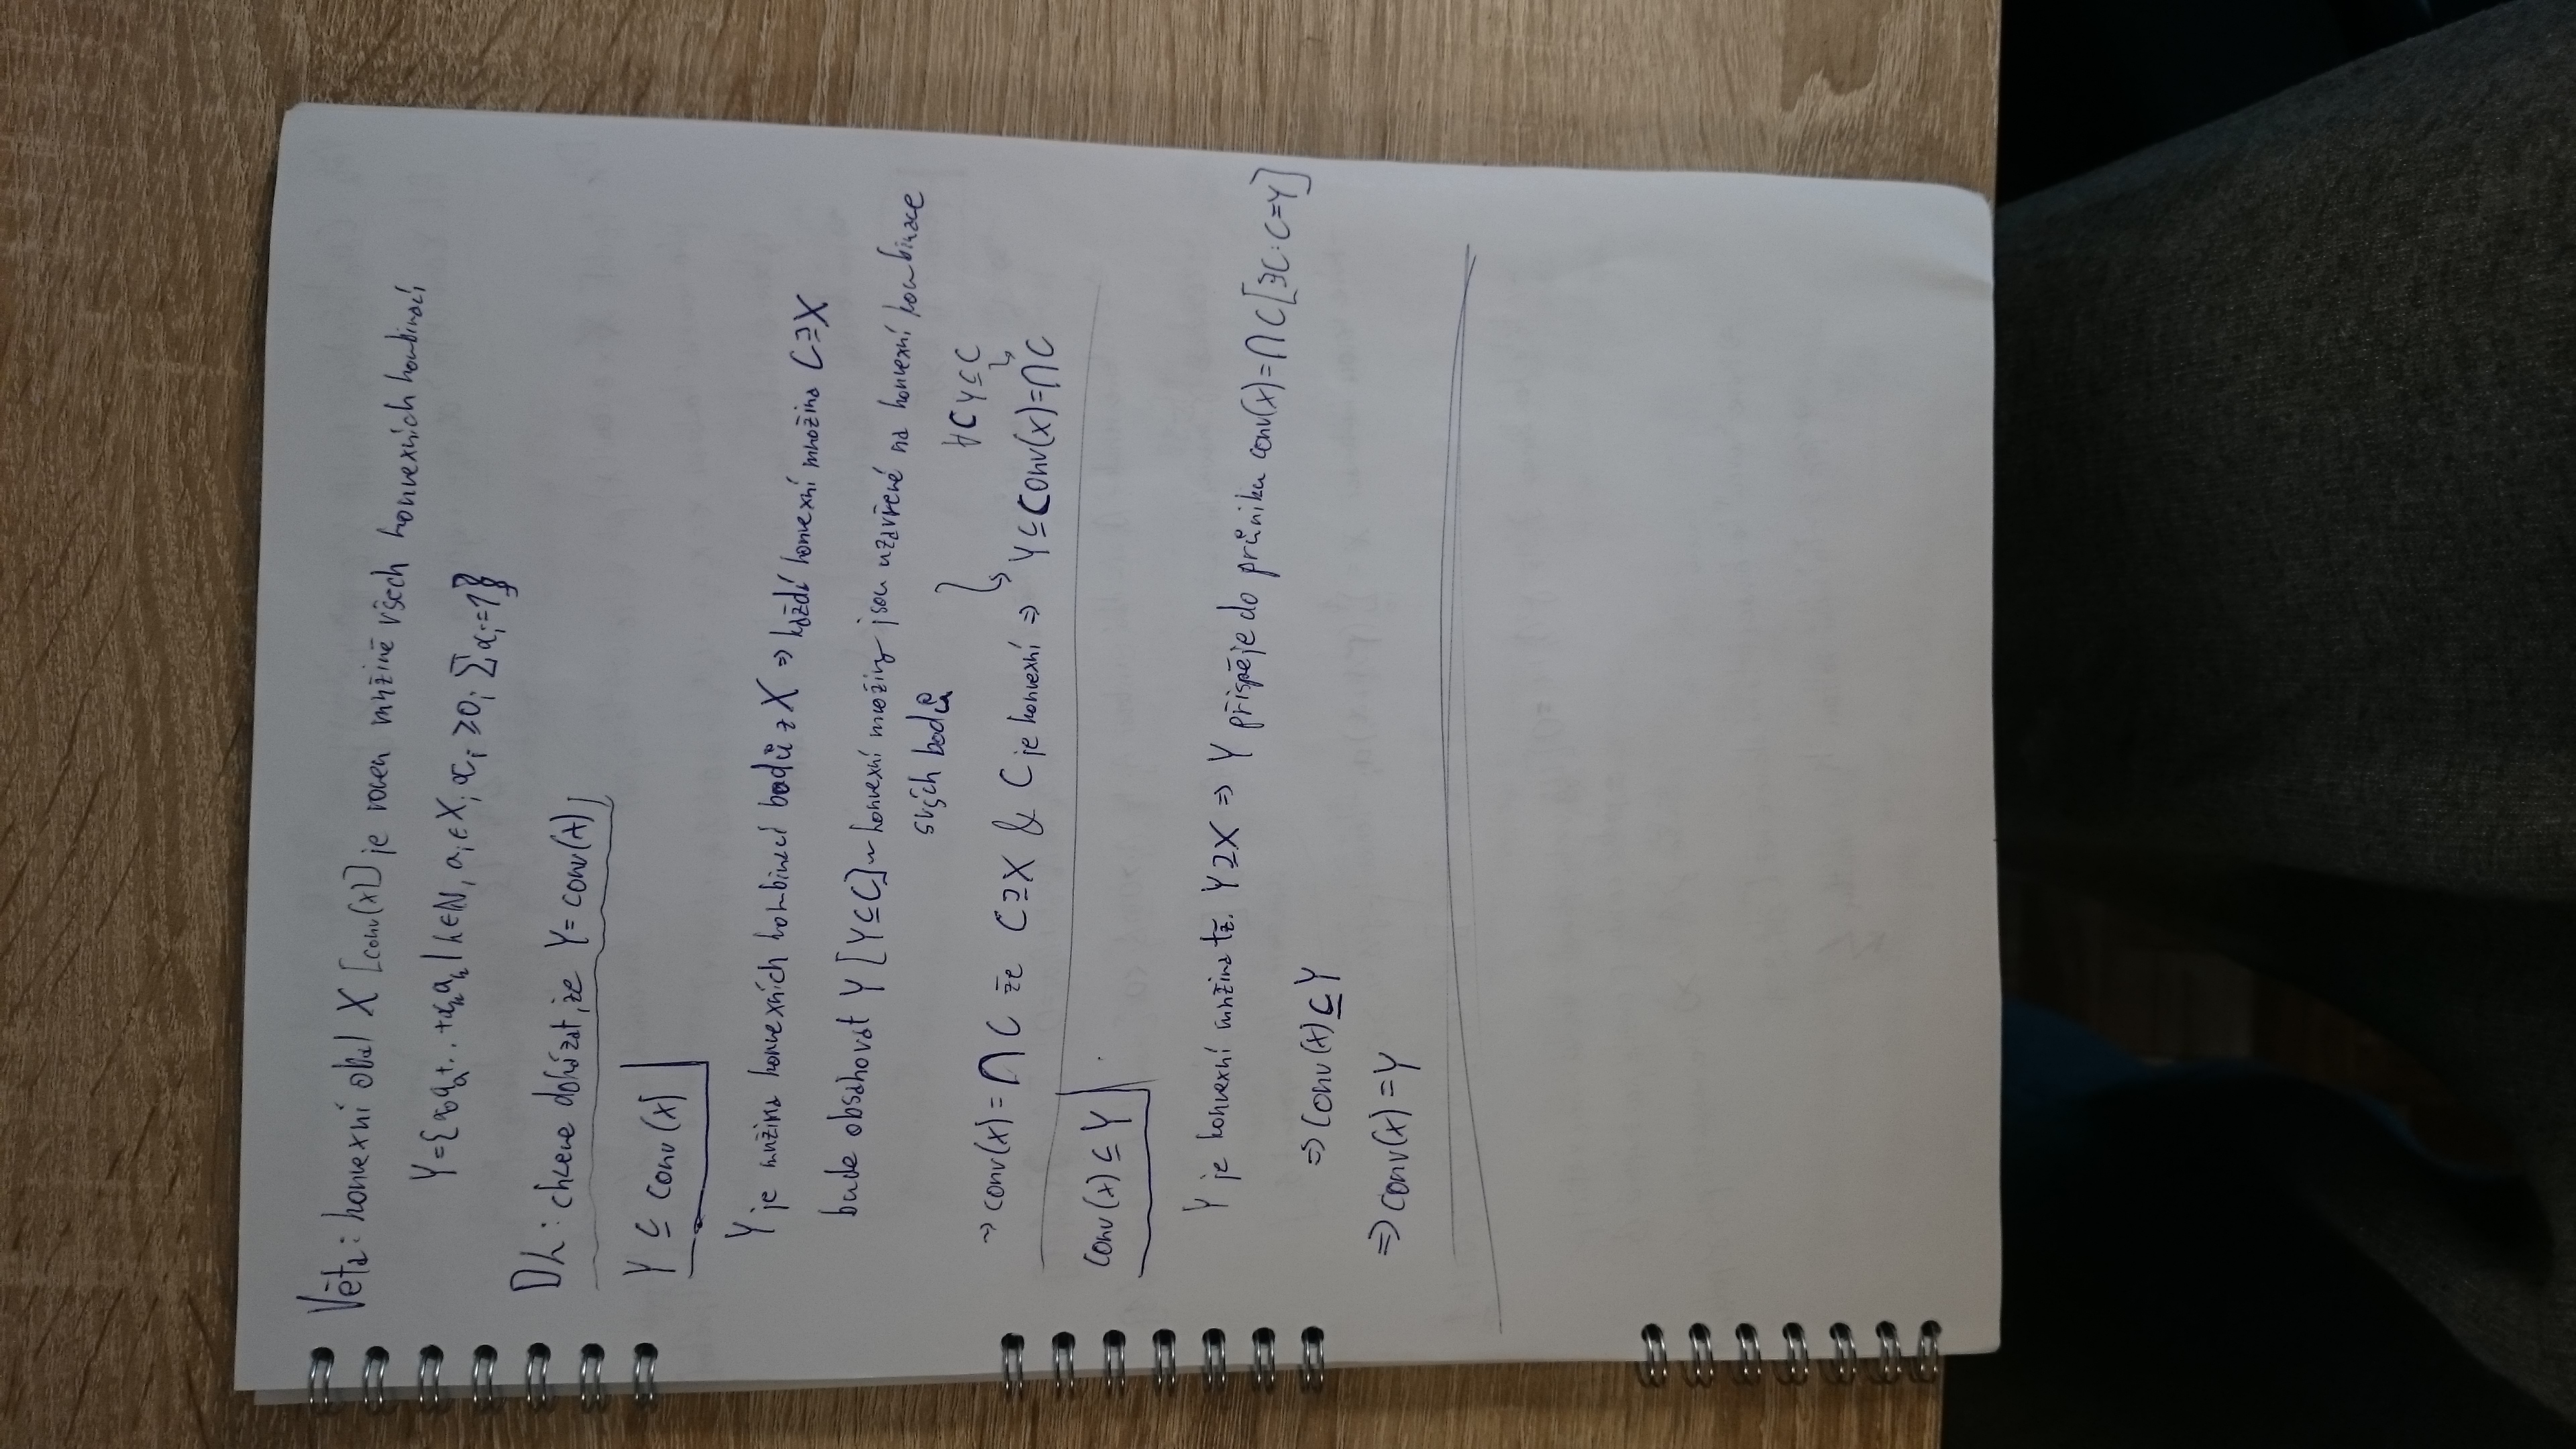 Věta: konvexní obal X [conv(X)] je roven množině všech konvexních kombinací
Y={α₀a₀+..+αₖaₖ | k∈ℕ, aᵢ∈X; αᵢ≥0; ∑αᵢ=1}
Dk: chceme dokázat, že Y=conv(X)
Y ⊆ conv(X)
Y je množina konvexních kombinací bodů z X ⇒ každá konvexní množina C⊇X
bude obsahovat Y [Y⊆C] ~ konvexní množiny jsou uzavřené na konvexní kombinace
svých bodů
∀C Y⊆C
⇒ conv(X)=∩C že C⊇X & C je konvexní ⇒ Y⊆conv(X)=∩C
conv(X)⊆Y
Y je konvexní množina tž. Y⊇X ⇒ Y přispěje do průniku conv(X)=∩C[∃C:C=Y]
⇒ conv(X)⊆Y
⇒ conv(X)=Y